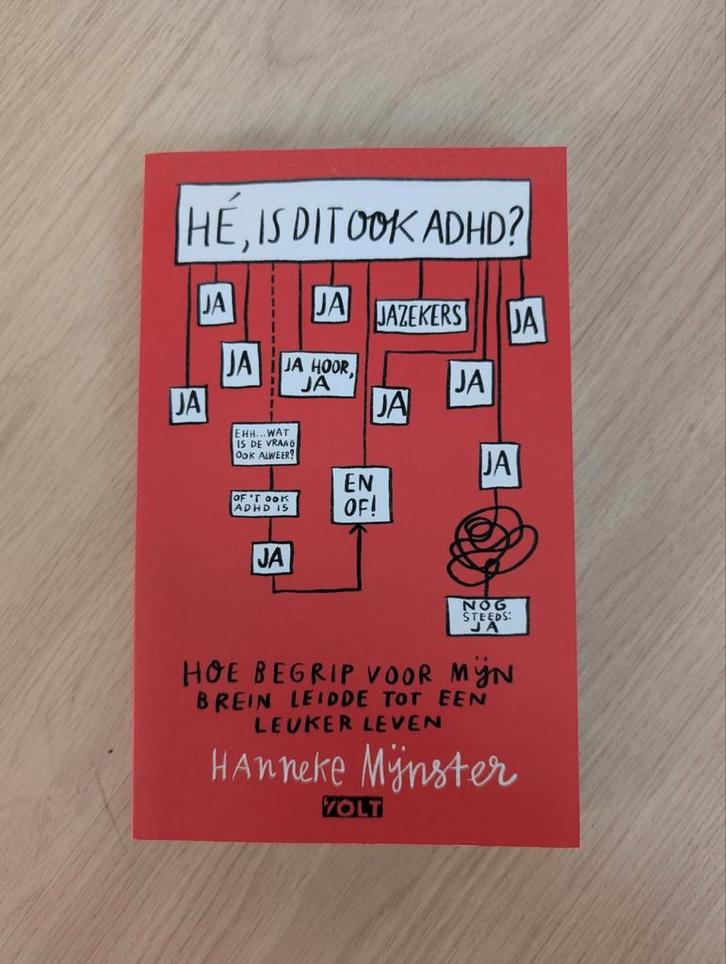 HÉ, IS DIT OOK ADHD?
JA
JA
JAZEKERS
JA
JA
JA HOOR,
JA
JA
JA
JA
EHH...WAT
IS DE VRAAG
OOK ALWEER?
JA
EN
OF!
OF 'T OOK
ADHD IS
JA
NOG
STEEDS:
JA
HOE BEGRIP VOOR MIJN
BREIN LEIDDE TOT EEN
LEUKER LEVEN
Hanneke Mijnster
VOLT